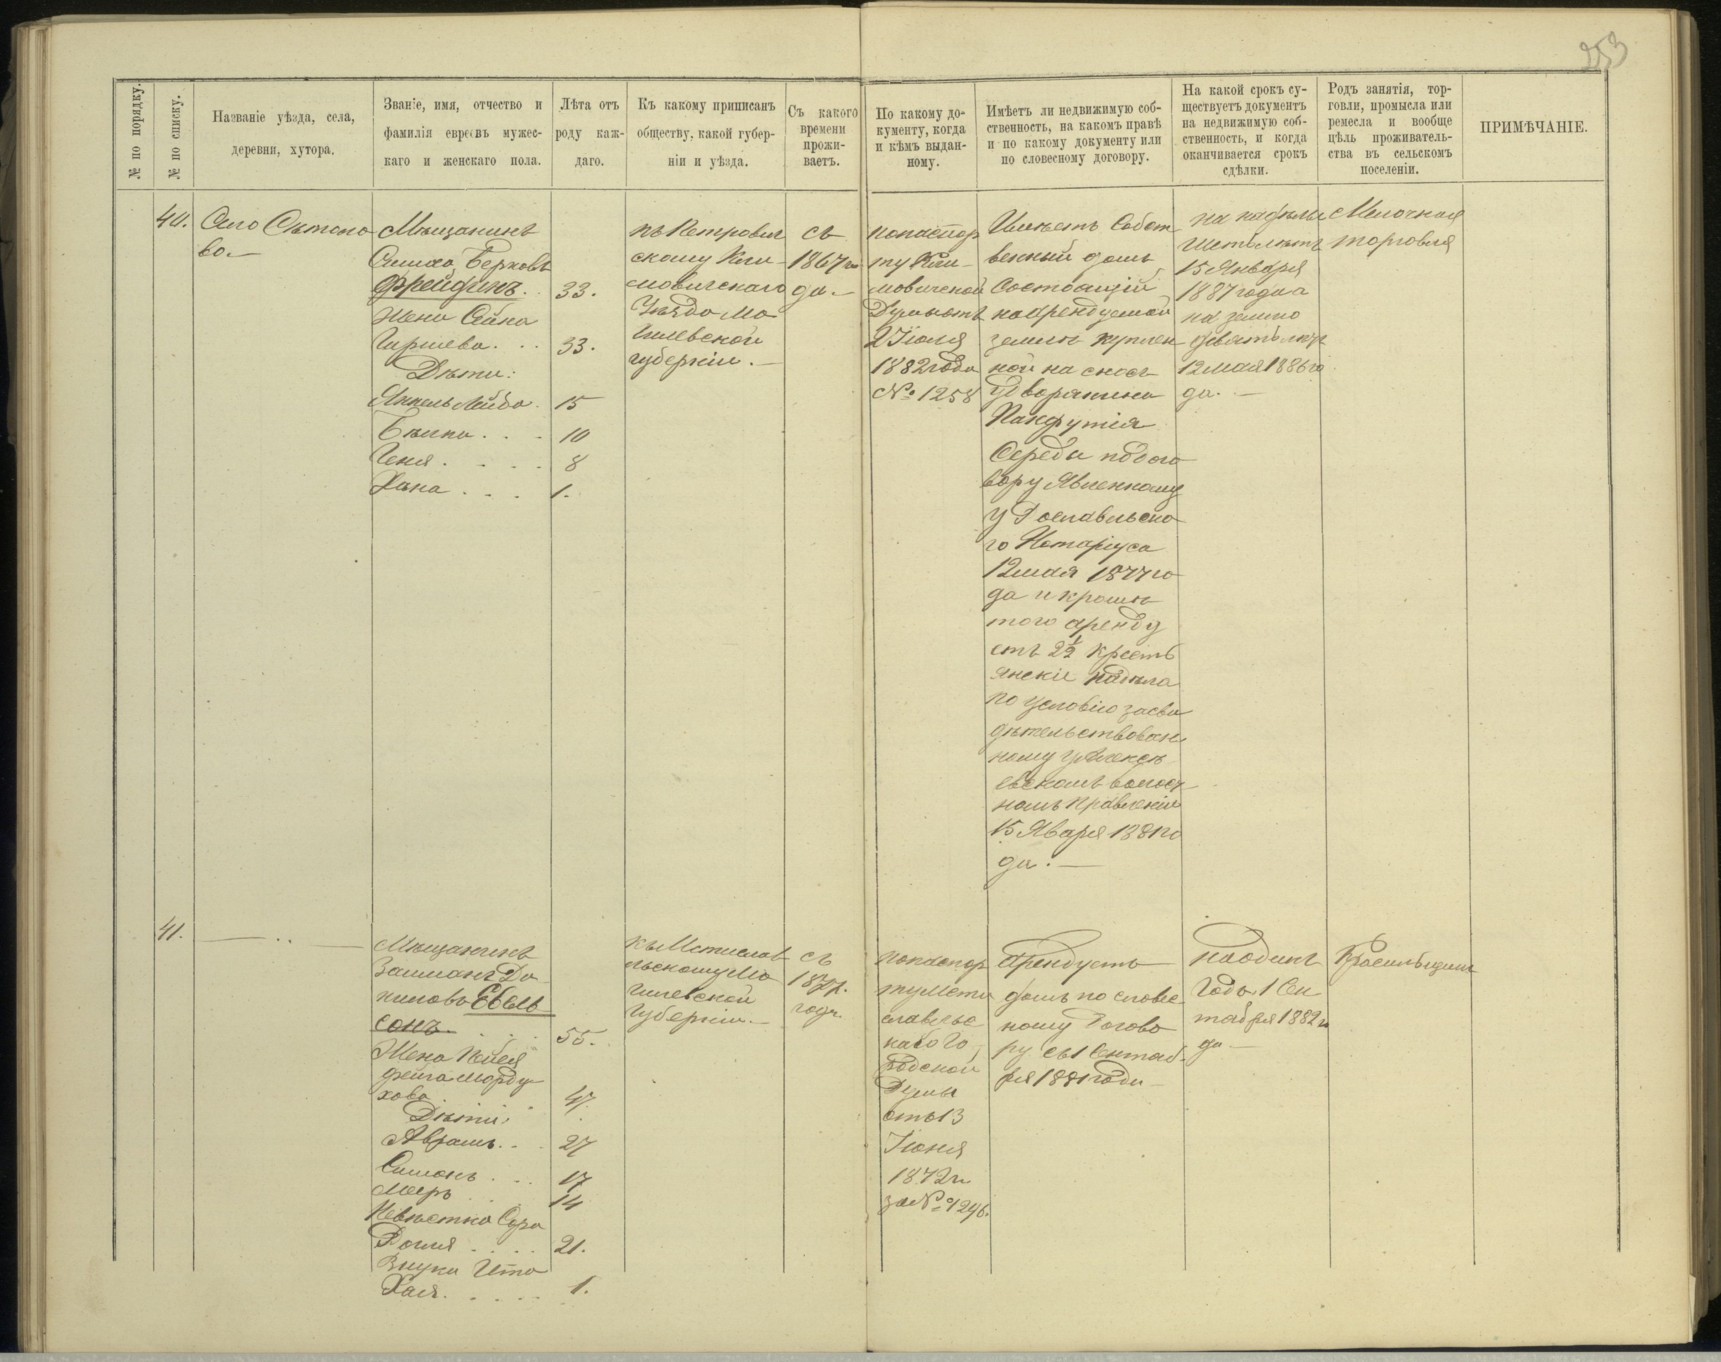 253
№ по порядку.
№ по списку.
Названіе уѣзда, села,
деревни, хутора.
Званіе, имя, отчество и
фамилія евреевъ мужес-
каго и женскаго пола.
Лѣта отъ
роду каж-
даго.
Къ какому приписанъ
обществу, какой губер-
ніи и уѣзда.
Съ какого
времени
прожи-
ваетъ.
По какому до-
кументу, когда
и кѣмъ выдан-
ному.
Имѣетъ ли недвижимую соб-
ственность, на какомъ правѣ
и по какому документу или
по словесному договору.
На какой срокъ су-
ществуетъ документъ
на недвижимую соб-
ственность, и когда
оканчивается срокъ
сдѣлки.
Родъ занятія, тор-
говли, промысла или
ремесла и вообще
цѣль проживатель-
ства въ сельскомъ
поселеніи.
ПРИМѢЧАНІЕ.
40.
Село
во.
Мѣщанинъ
Берковъ
Фрейдинъ. 33.
Жена
Гиршева. 33.
Дѣти:
Янкель Лейба. 15
10
Геня. 8
Хана. 1.
къ Петрович
скому Кли-
мовичскаго
Уѣзда Мо
гилевской
губерніи.
съ
1867 го
да.
попаспор
ту Кли-
мовичской
Думы отъ
2 Іюля
1882 года
№ 1258
Имѣетъ собст
венный домъ
состоящій
на арендуемой
земли куплен
ной на сносъ
У Дворянина
Пафнутія
Середы по дого
вору явленному
у Рославльска
го Нотаріуса
12 мая 1877 го
да и кромѣ
того аренду
етъ 2½ кресть
янскіе надѣла
по условію засви
дѣтельствован
ному у Алексѣ
евскомъ волост
номъ правленіи
15 Января 1881 го
да.
на надѣлы
шесть лѣтъ
15 Января
1887 года а
на землю
девять лѣтъ
12 мая 1886 го
да.
Мелочная
торговля
41.
Мѣщанинъ
Залманъ Да
ниловъ Евель
сонъ. 55.
Жена
Фейга Морду
хова. 47.
Дѣти:
Абрамъ. 27
Симонъ. 17
Мееръ 14
Невѣстка Сора
21.
Внука Ита
Хая. 1.
къ Мстислав
льскому Мо
гилевской
Губерніи.
съ
1877.
года
попаспор
ту Мсти
славльс
кой Го
родской
Думы
отъ 13
Іюня
1872 г.
за № 1246.
Арендуетъ
домъ по словес
ному догово
ру съ 1 Сентяб
ря 1881 года
на одинъ
Годъ 1 Сен
тября 1882 го
да
Красильщикъ